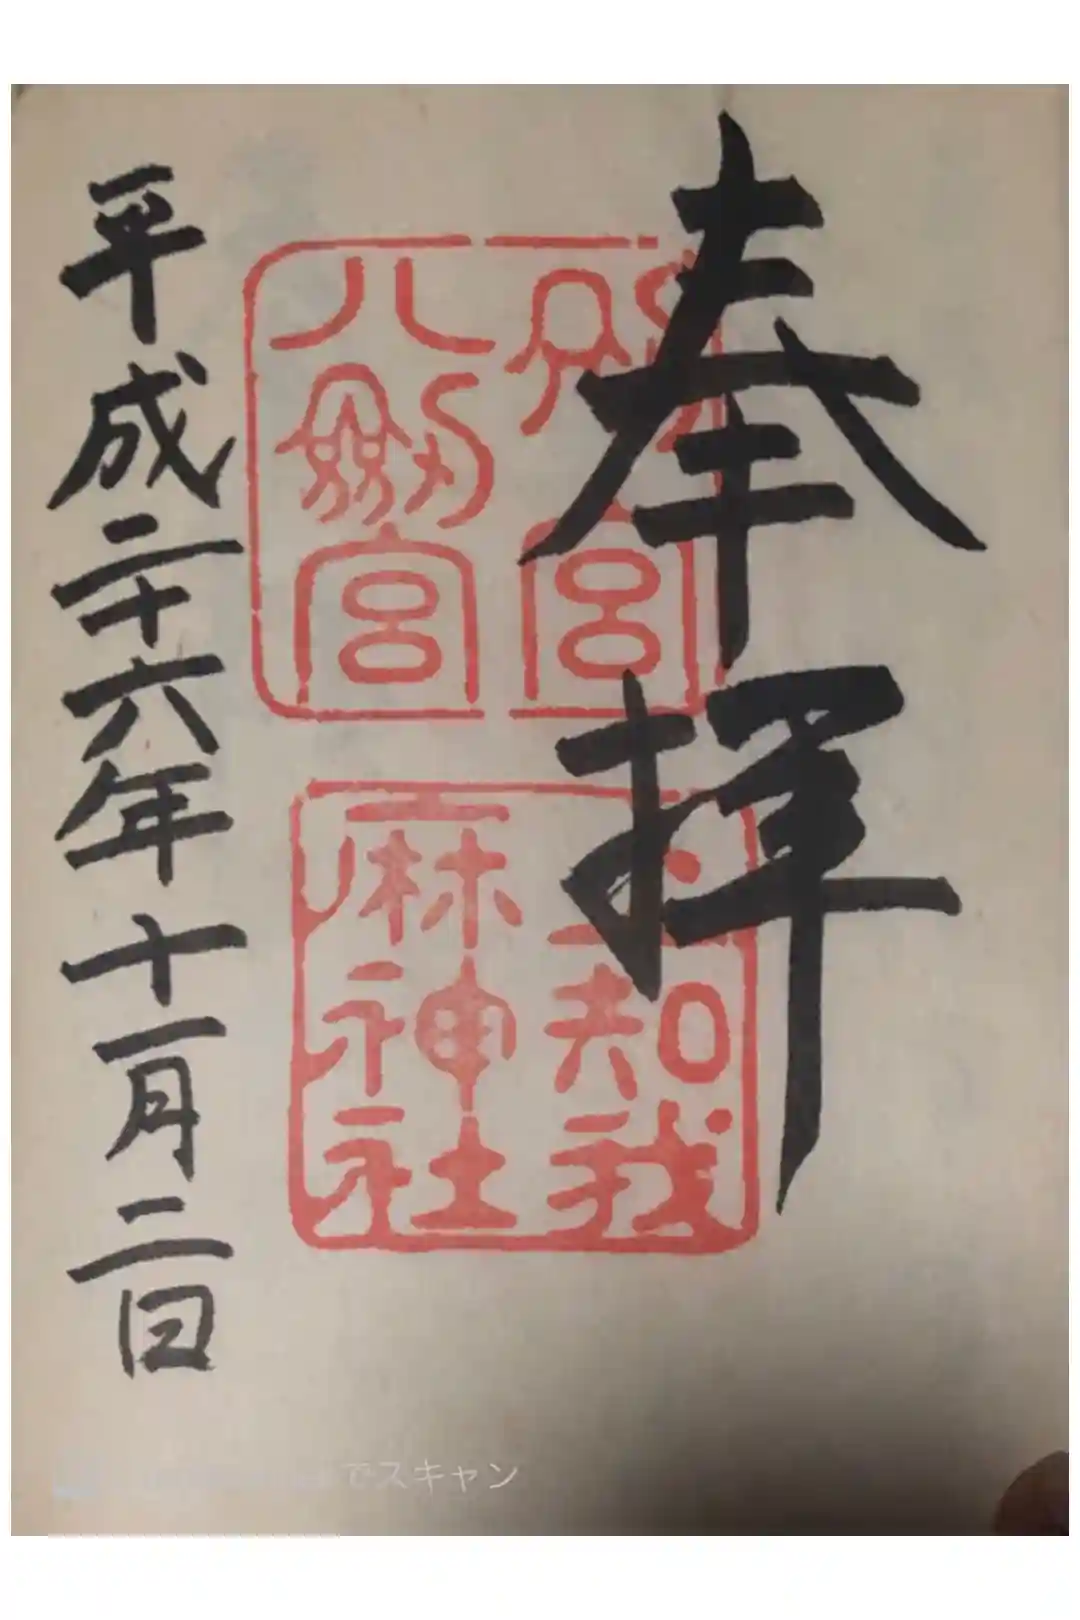 奉拝
別宮
八劔宮
上知我
麻神社
平成二十六年十一月二日
でスキャン